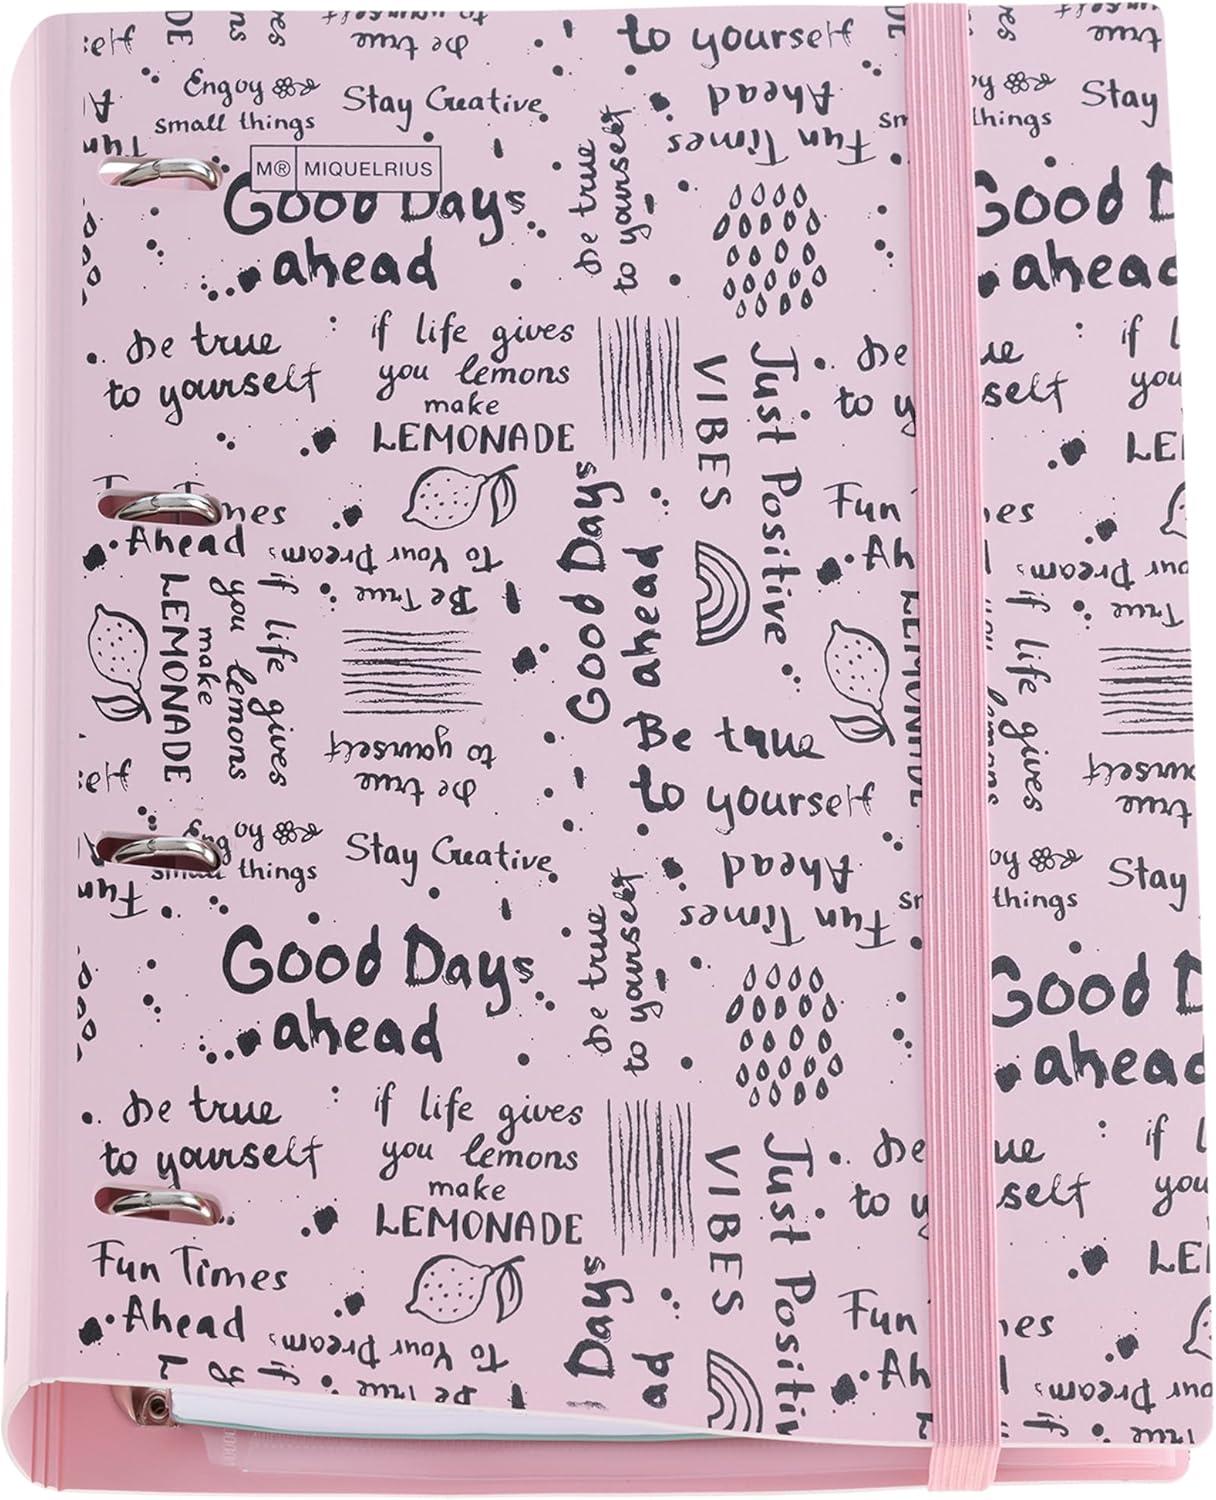 be true
to yourself
be true
to yourself
Engoy
small things
Stay Creative
Ahead
Fun Times
Stay
things
M® MIQUELRIUS
Good Days
ahead
be true
to yourself
Good D
ahead
be true
to yourself
if life gives
you lemons
make
LEMONADE
Just Positive
VIBES
be
to y
self
if l
you
LE
Fun Times
Ahead
To Your Dreams
Be True
Good Days
ahead
Fun
Ah
if life gives
you lemons
make
LEMONADE
be true
to yourself
Be true
to yourself
if life gives
lemons
LEMONADE
Engoy
small things
Stay Creative
Ahead
Fun Times
things
Stay
Good Days
ahead
be true
to yourself
Good D
ahead
be true
to yourself
if life gives
you lemons
make
LEMONADE
Just Positive
VIBES
be
to y
self
if l
you
LE
Fun Times
Ahead
To Your Dreams
Be True
Days
ad
Fun
Ah